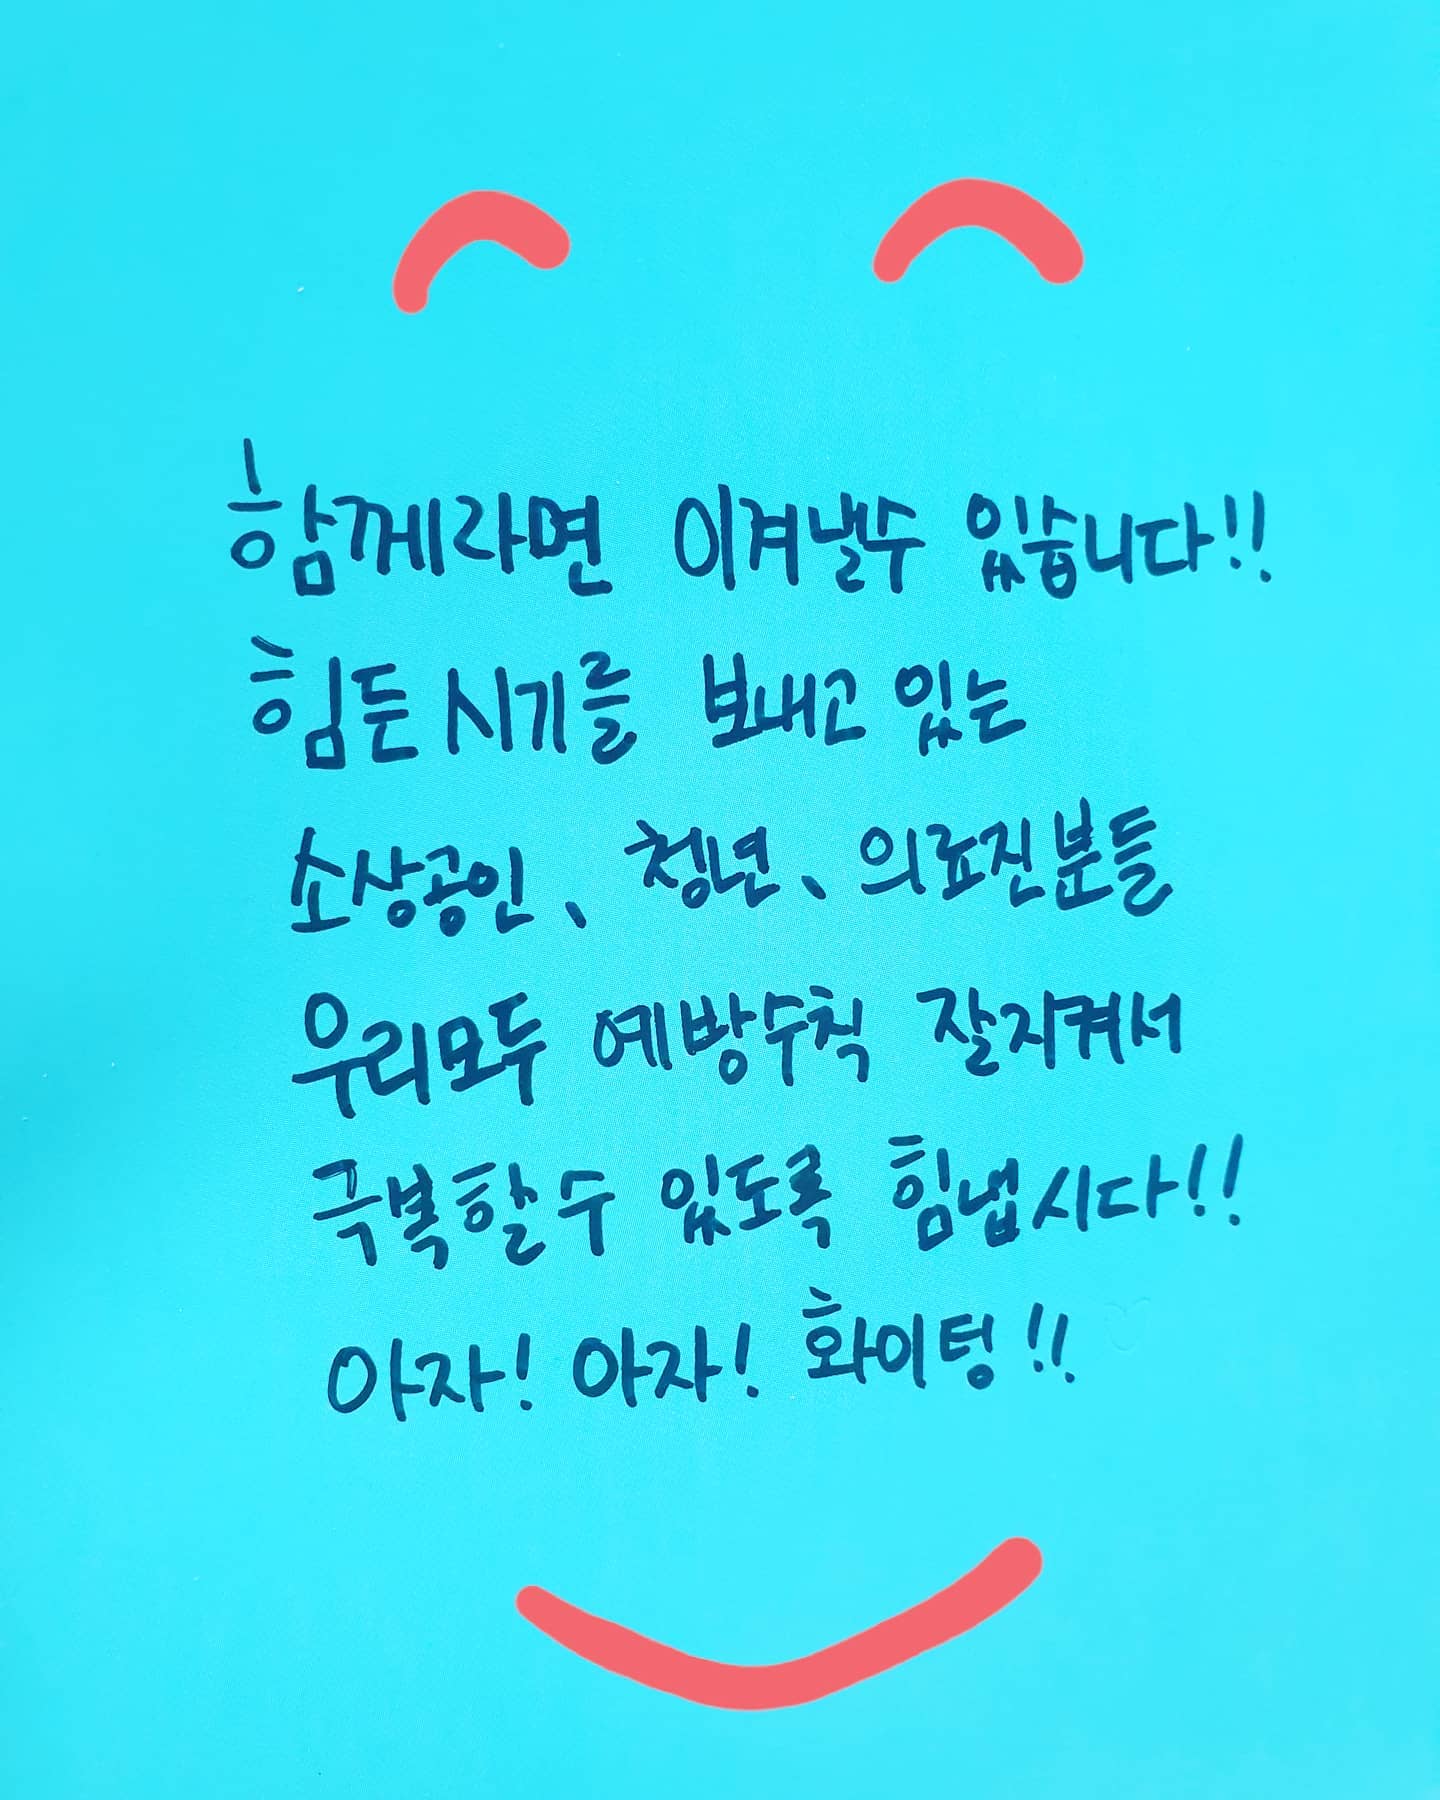 함께라면 이겨낼수 있습니다!!
힘든 시기를 보내고 있는
소상공인、 청년、 의료진분들
우리모두 예방수칙 잘지켜서
극복할 수 있도록 힘냅시다!!
아자! 아자! 화이팅!!